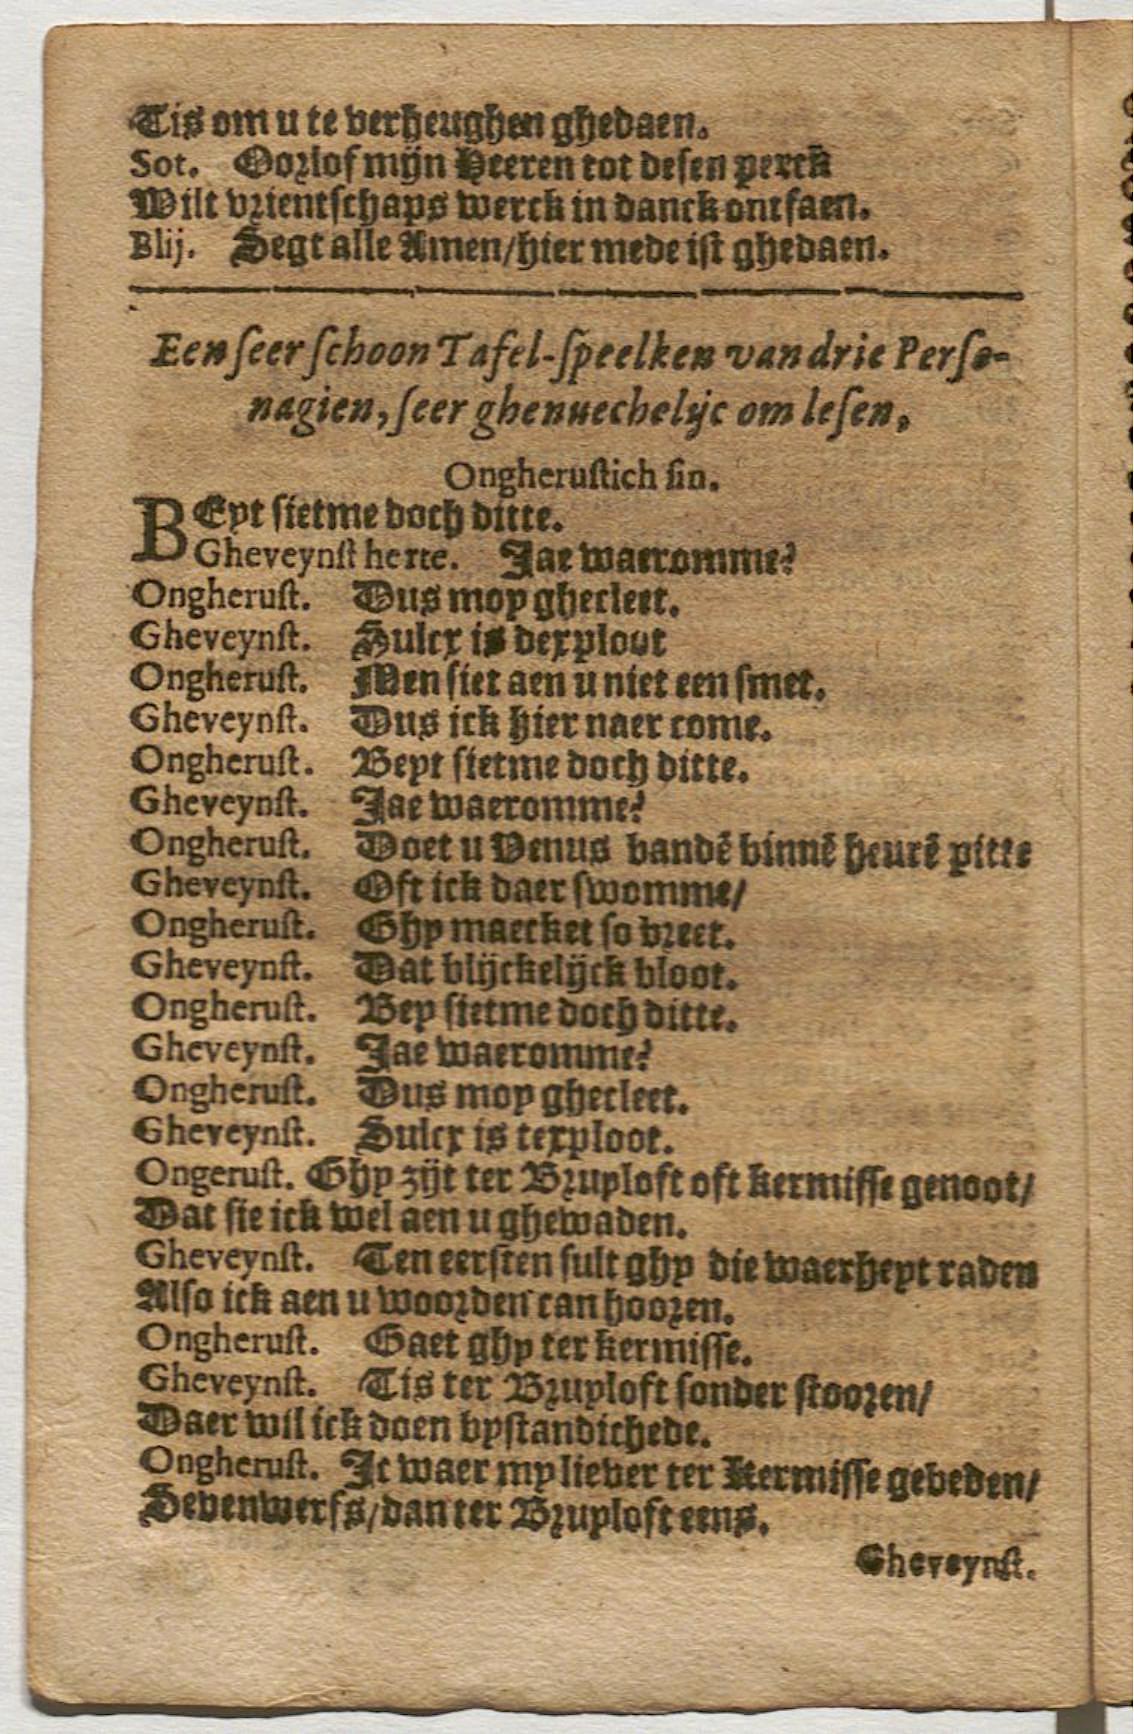 Tis om u te verheughen ghedaen.
Sot. Oorlof mijn Heeren tot desen perck
Wilt vrientschaps werck in danck ontfaen.
Blij. Segt alle Amen/hier mede ist ghedaen.
Een seer schoon Tafel-speelken van drie Perso-
nagien, seer ghenuechelijc om lesen,
Ongherustich sin.
BEyt sietme doch ditte.
Gheveynst herte. Jae waeromme?
Ongherust. Dus moy ghecleet.
Gheveynst. Sulcx is dexploot
Ongherust. Men siet aen u niet een smet.
Gheveynst. Dus ick hier naer come.
Ongherust. Beyt sietme doch ditte.
Gheveynst. Jae waeromme?
Ongherust. Doet u Venus bandē binnē heurē pitte
Gheveynst. Oft ick daer swomme/
Ongherust. Ghy maecket so breet.
Gheveynst. Dat blijckelijck bloot.
Ongherust. Bey sietme doch ditte.
Gheveynst. Jae waeromme?
Ongherust. Dus moy ghecleet.
Gheveynst. Sulcx is texploot.
Ongerust. Ghy zijt ter Bruyloft oft kermisse genoot/
Dat sie ick wel aen u ghewaden.
Gheveynst. Ten eersten sult ghy die waerheyt raden
Also ick aen u woorden can hooren.
Ongherust. Gaet ghy ter kermisse.
Gheveynst. Tis ter Bruyloft sonder stooren/
Daer wil ick doen bystandichede.
Ongherust. Jc waer my liever ter Kermisse gebeden/
Sevenwerfs/dan ter Bruyloft eens.
Gheveynst.